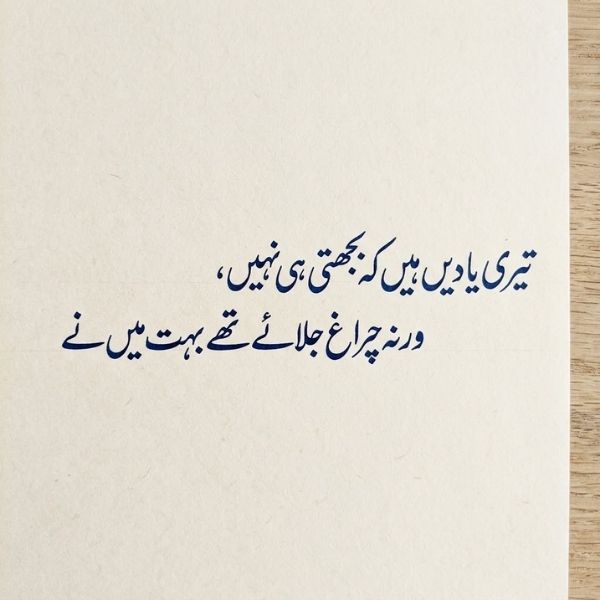 تیری یادیں ہیں کہ بجھتی ہی نہیں،
ورنہ چراغ جلائے تھے بہت میں نے